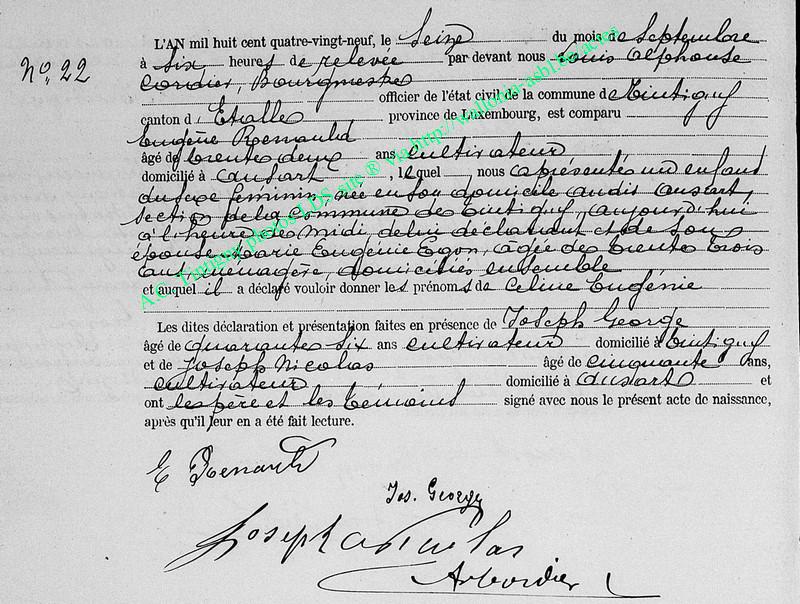 No. 22
L'AN mil huit cent quatre-vingt-neuf, le Seize du mois de Septembre
à Six heures de relevée par devant nous Louis Alphonse
Cordier, Bourgmestre
officier de l'état civil de la commune de Tintigny
canton d'Etalle province de Luxembourg, est comparu
Eugène Renauld
âgé de trente deux ans cultivateur
domicilié à Ansart, lequel nous a présenté un enfant
du sexe féminin, née en son domicile audit Ansart,
section de la commune de Tintigny, aujourd'hui
à l'heure de midi, de lui déclarant et de son
épouse Marie Eugénie Egon, âgée de trente trois
ans, ménagère, domiciliés ensemble
et auquel il a déclaré vouloir donner les prénoms de Celine Eugénie
Les dites déclaration et présentation faites en présence de Joseph George
âgé de quarante six ans cultivateur domicilié à Tintigny
et de Joseph Nicolas âgé de cinquante ans,
cultivateur domicilié à Ansart et
ont les père et les témoins signé avec nous le présent acte de naissance,
après qu'il leur en a été fait lecture.
E Renauld
Jos. George
Joseph Nicolas
A Cordier
A.C. Tintigny photos LDS site ® via http://wallonia-asbl.be.actes